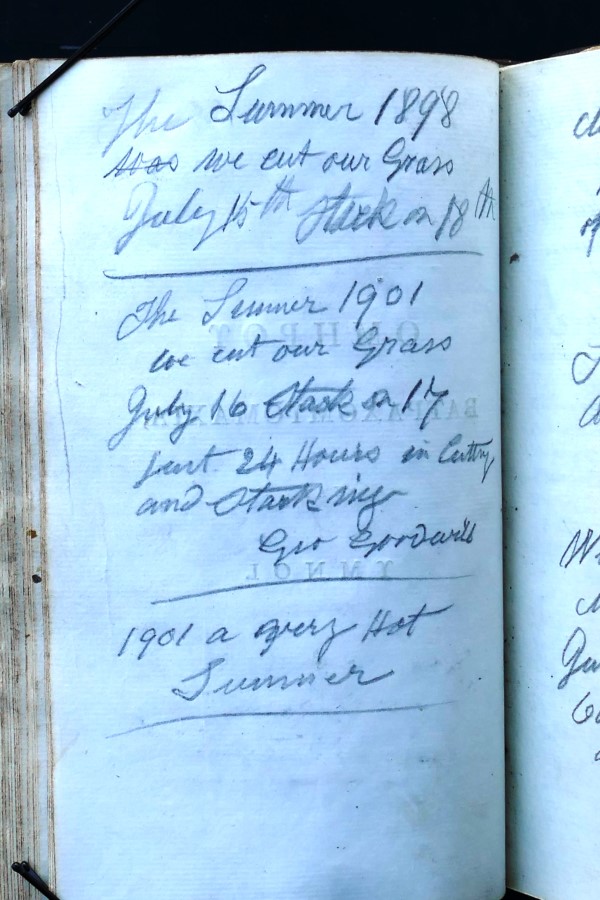 The Summer 1898
was we cut our Grass
July 15th Stack on 18th
The Summer 1901
we cut our Grass
July 16 Stack on 17
just 24 Hours in Cutting
and Stacking
Geo
1901 a very Hot
Summer